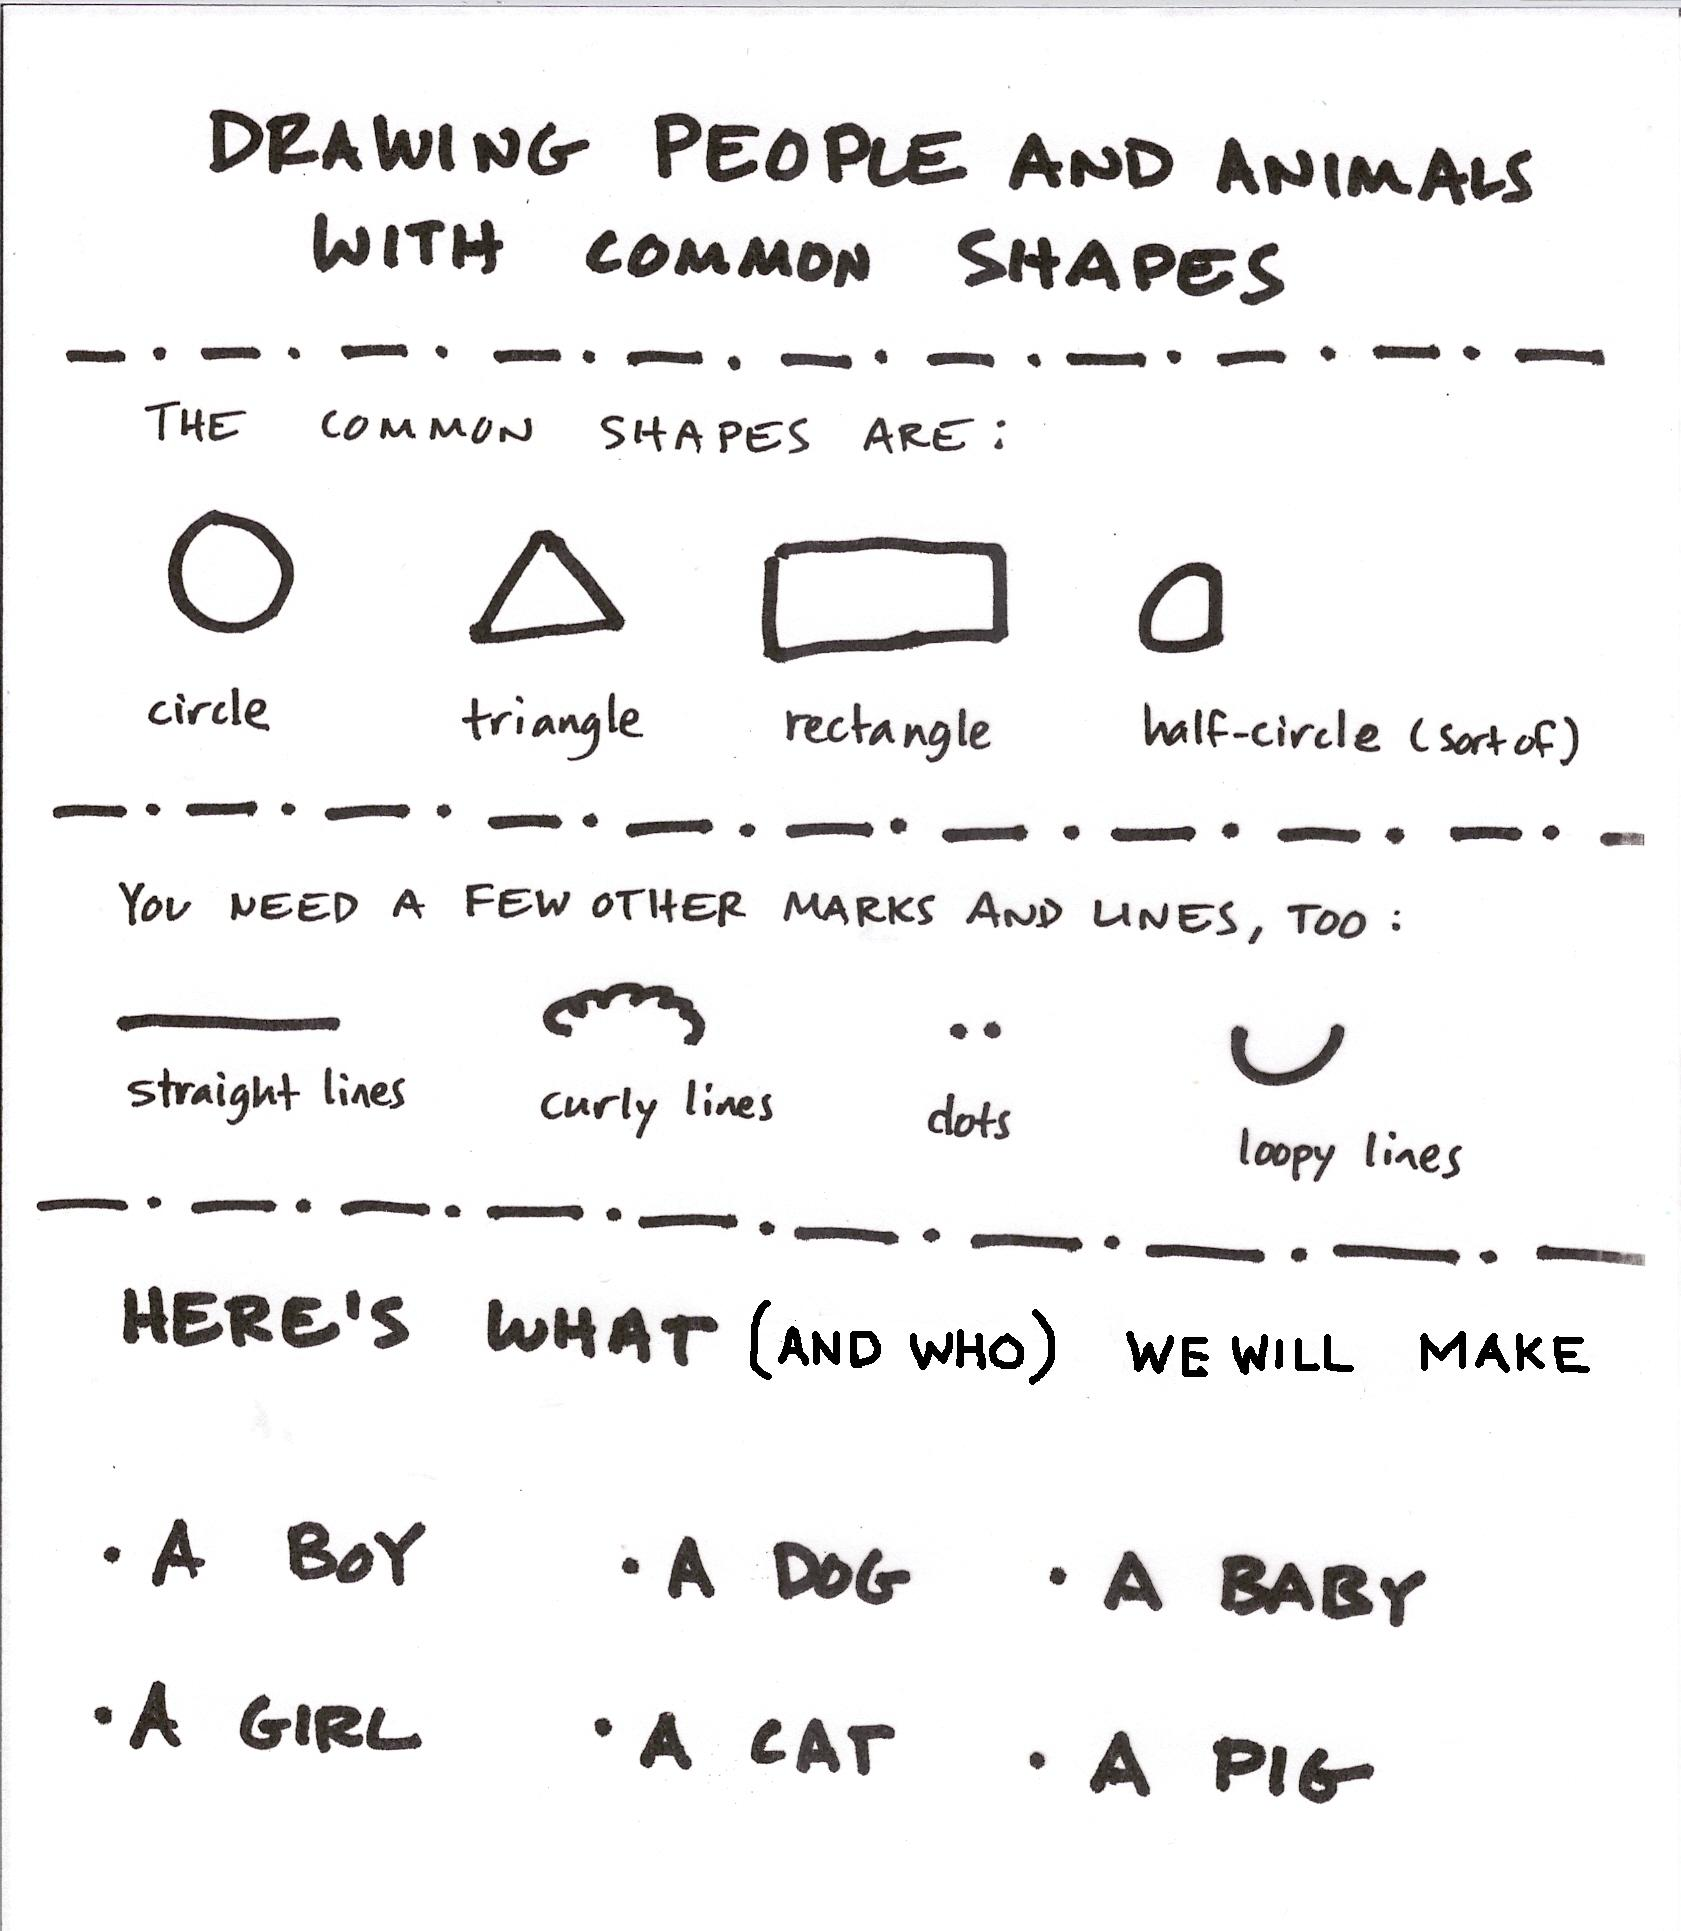 DRAWING PEOPLE AND ANIMALS
WITH COMMON SHAPES
THE COMMON SHAPES ARE:
circle triangle rectangle half-circle (sort of)
YOU NEED A FEW OTHER MARKS AND LINES, TOO:
straight lines curly lines dots loopy lines
HERE'S WHAT (AND WHO) WE WILL MAKE
• A BOY • A DOG • A BABY
• A GIRL • A CAT • A PIG